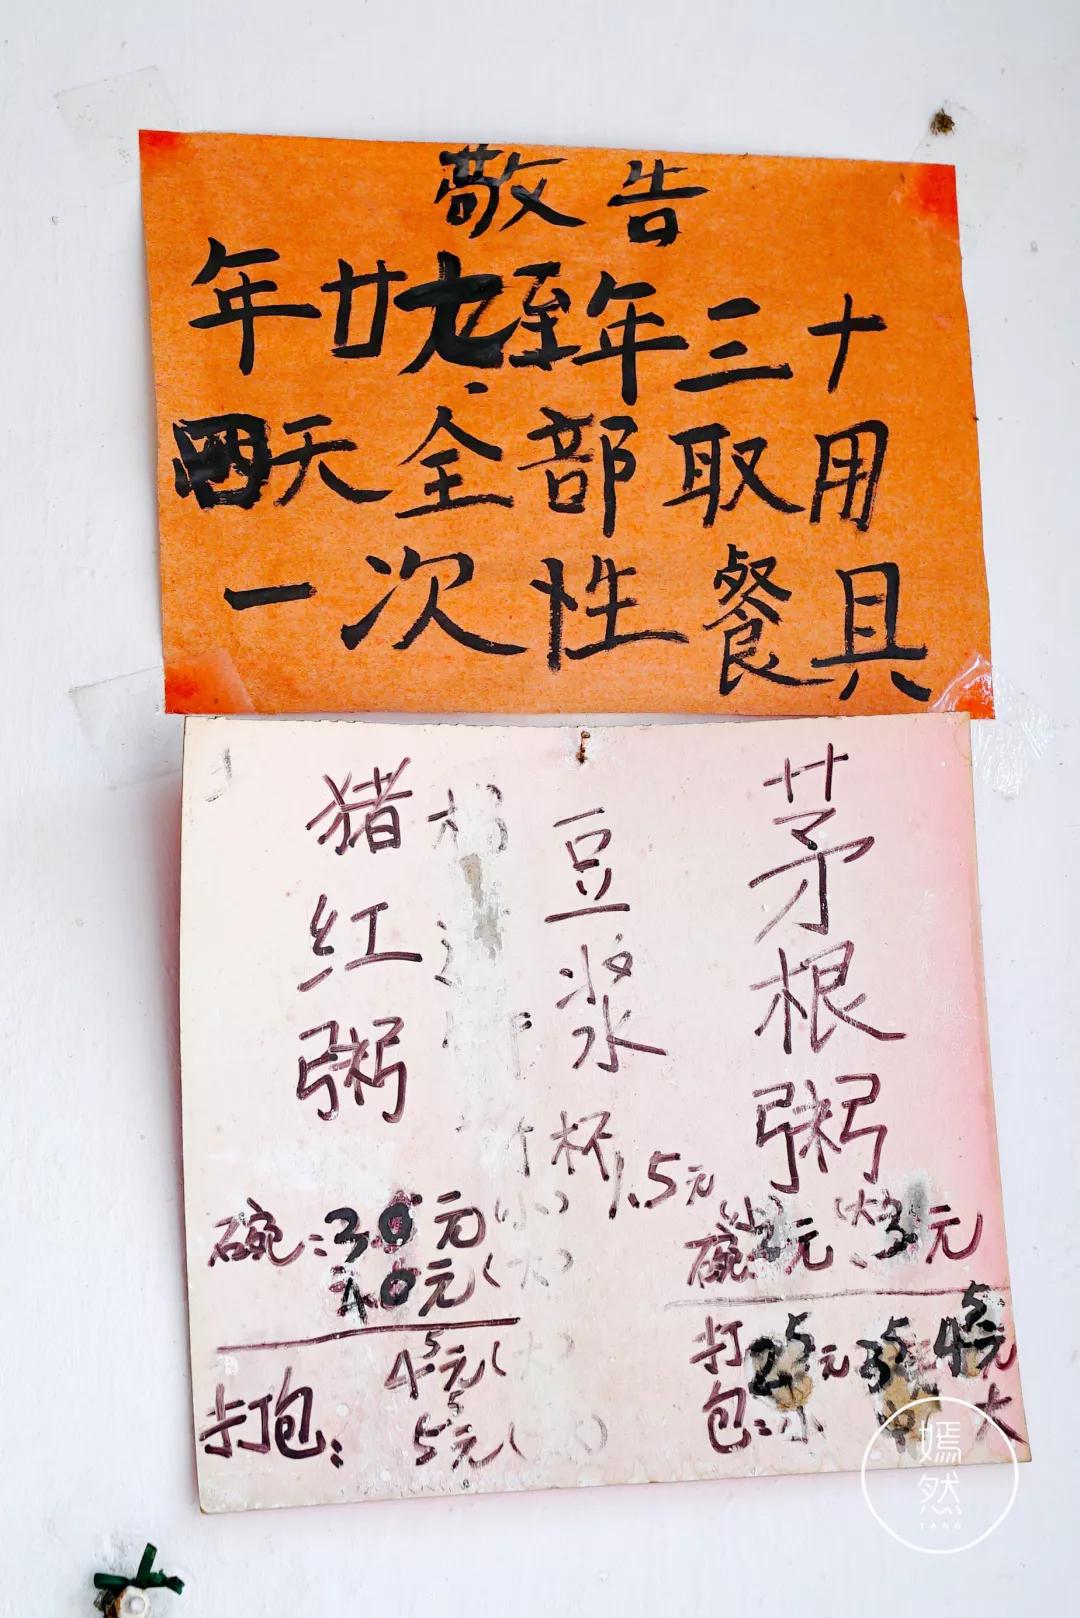 敬告
年廿九至年三十
四天全部取用
一次性餐具
猪红粥
豆浆
杯1.5元
茅根粥
碗:30元(小)
40元(大)
打包:
4.5元(大)
5.5元(
碗(小)元(大)3元
打包:
2.5元 3.5 4.5元
小 中 大
嫣然
TANG